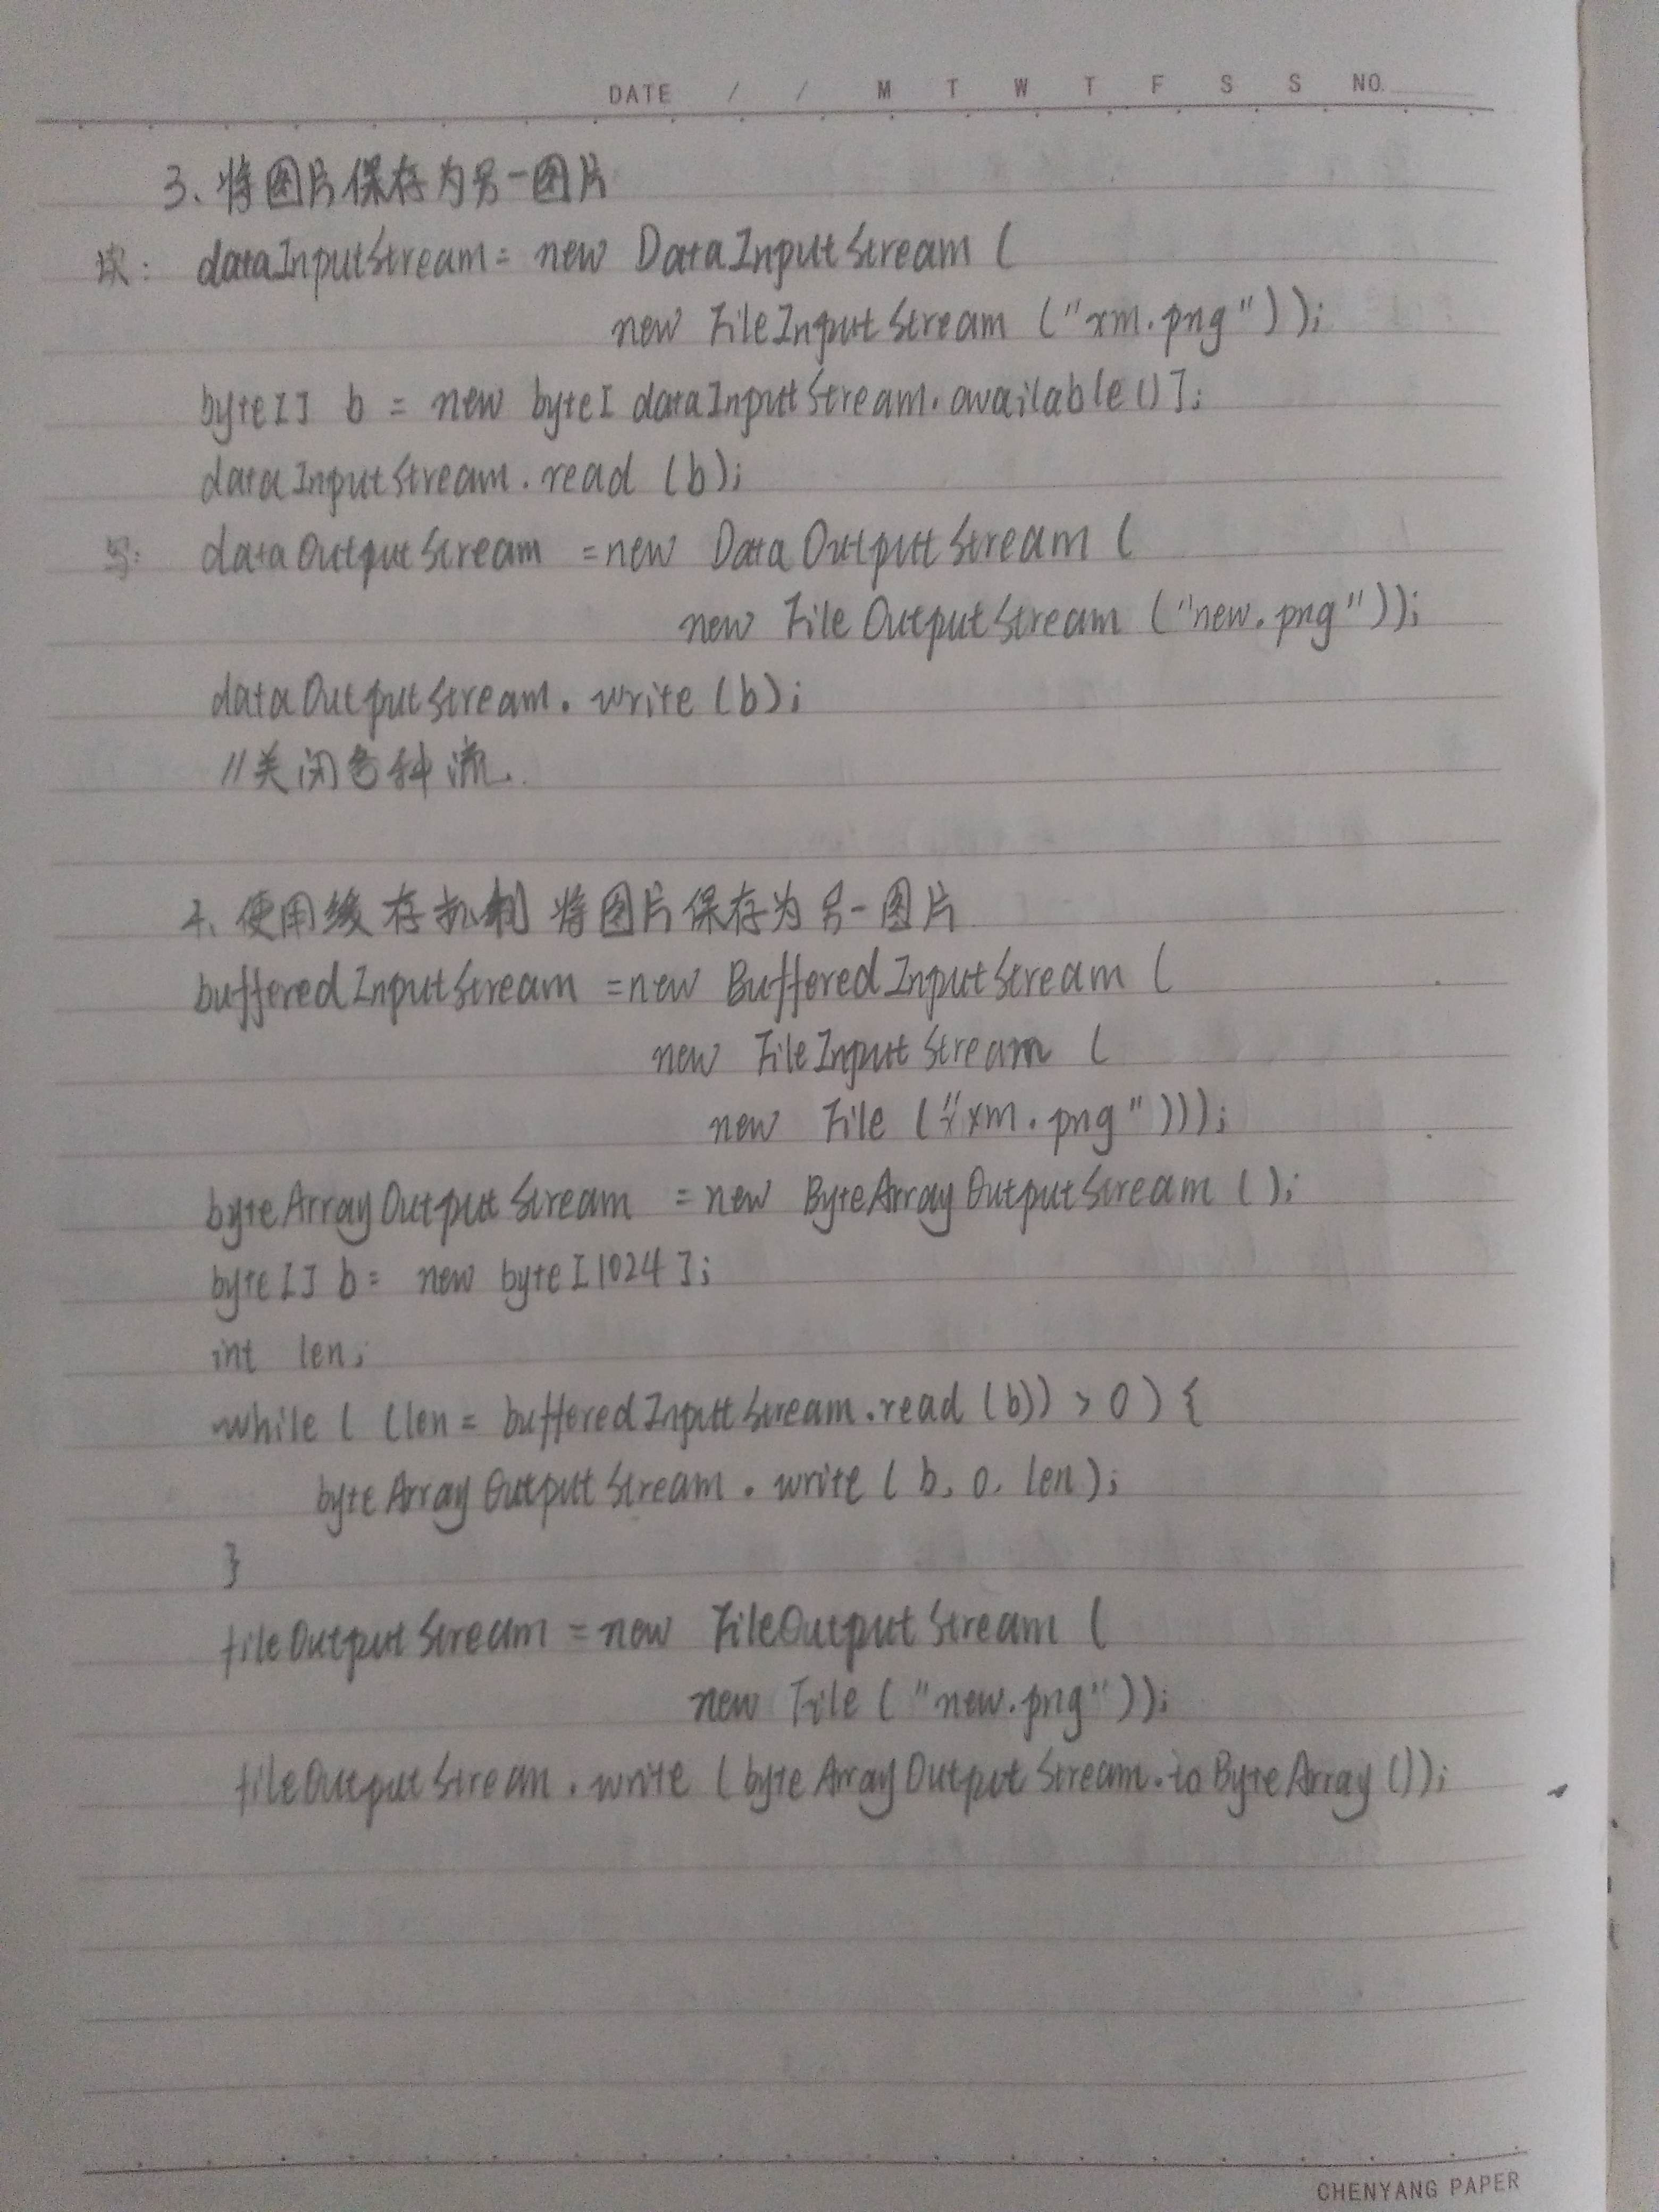 DATE / / M T W T F S S NO.
3、将图片保存为另一图片
读: dataInputStream = new DataInputStream (
new FileInputStream ("xm.png"));
byte[] b = new byte[ dataInputStream.available()];
dataInputStream.read (b);
写: dataOutputStream = new DataOutputStream (
new FileOutputStream ("new.png"));
dataOutputStream.write (b);
//关闭各种流.
4、使用缓存机制 将图片保存为另一图片
bufferedInputStream = new BufferedInputStream (
new FileInputStream (
new File ("xm.png")));
byteArrayOutputStream = new ByteArrayOutputStream ();
byte[] b = new byte[1024];
int len;
while ( (len = bufferedInputStream.read (b)) > 0 ) {
byteArrayOutputStream.write ( b, 0, len);
}
fileOutputStream = new FileOutputStream (
new File ("new.png"));
fileOutputStream.write (byteArrayOutputStream.toByteArray ());
CHENYANG PAPER